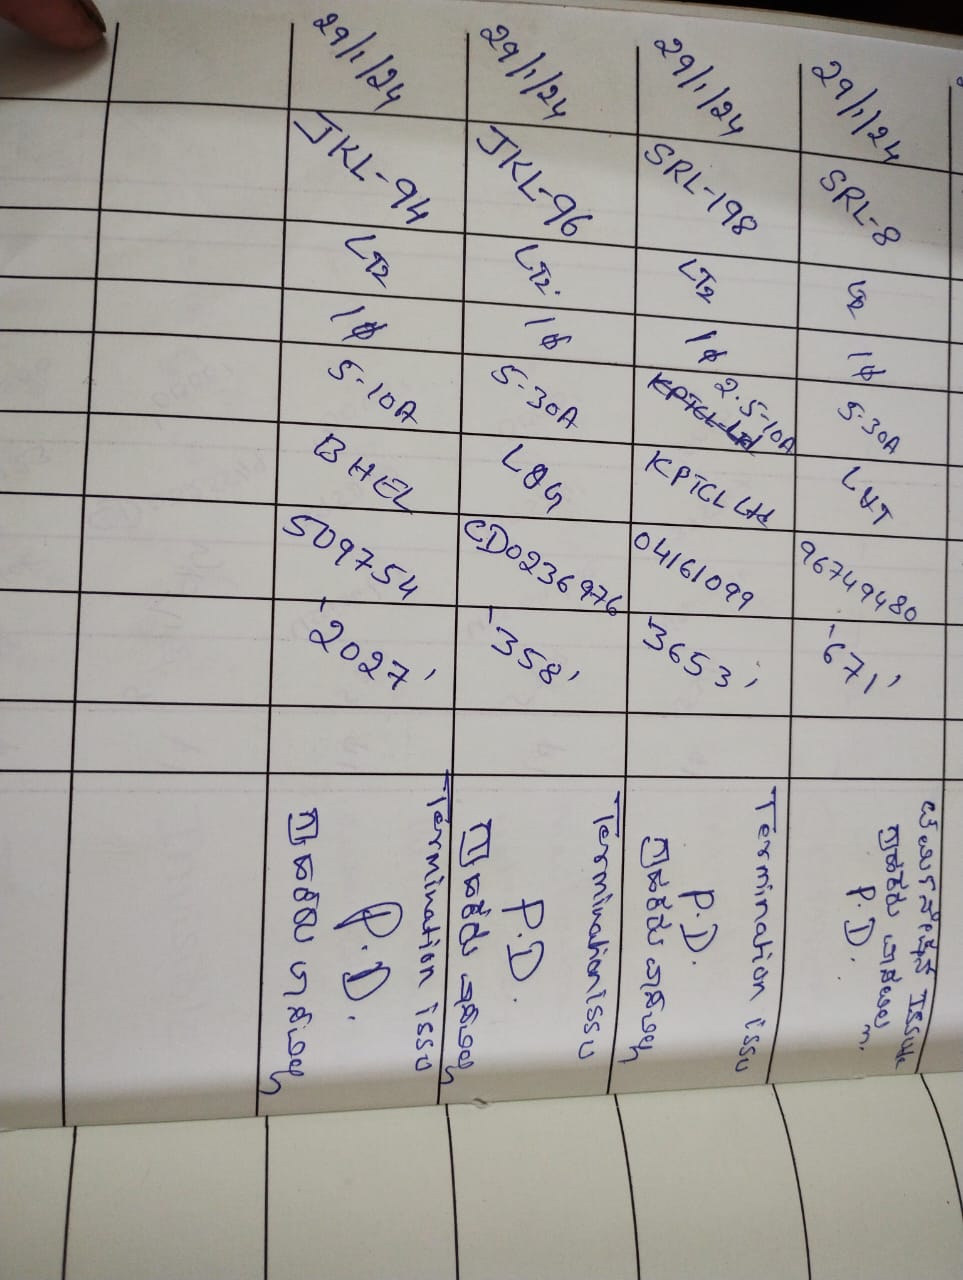 29/1/24
SRL-8
LT2
1ϕ
5-30A
L&T
96749480
'671'
P.D.
29/1/24
SRL-198
LT2
1ϕ
2.5-10A
KPTCL LH
04161099
'3653'
Termination issu
P.D.
29/1/24
JKL-96
LT2.
1ϕ
5-30A
L&G
CD0236976
'358'
Termination issu
P.D.
29/1/24
JKL-94
LT2
1ϕ
5-10A
BHEL
509754
'2027'
Termination issu
P.D.